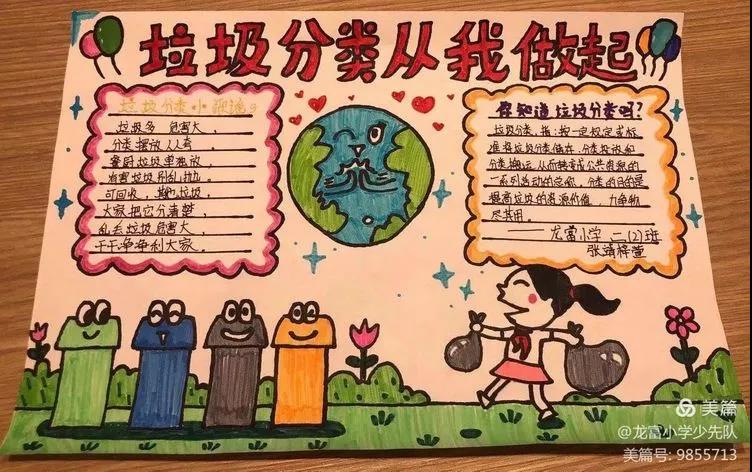 垃圾分类从我做起
垃圾分类小
垃圾多 危害大，
分类摆放人人夸，
餐厨垃圾单独放，
有害垃圾别乱扔。
可回收，其他垃圾，
大家把它分清楚，
乱丢垃圾危害大，
干干净净利大家。
你知道垃圾分类吗？
垃圾分类，指：按一定规定或标
准将垃圾分类储存、分类投放和
分类搬运，从而转变成公共资源的
一系列活动的总称，分类的目的是
提高垃圾的资源价值，力争物
尽其用。
——龙富小学 二(2)班
张靖梓萱
美篇
@龙富小学少先队
美篇号: 9855713